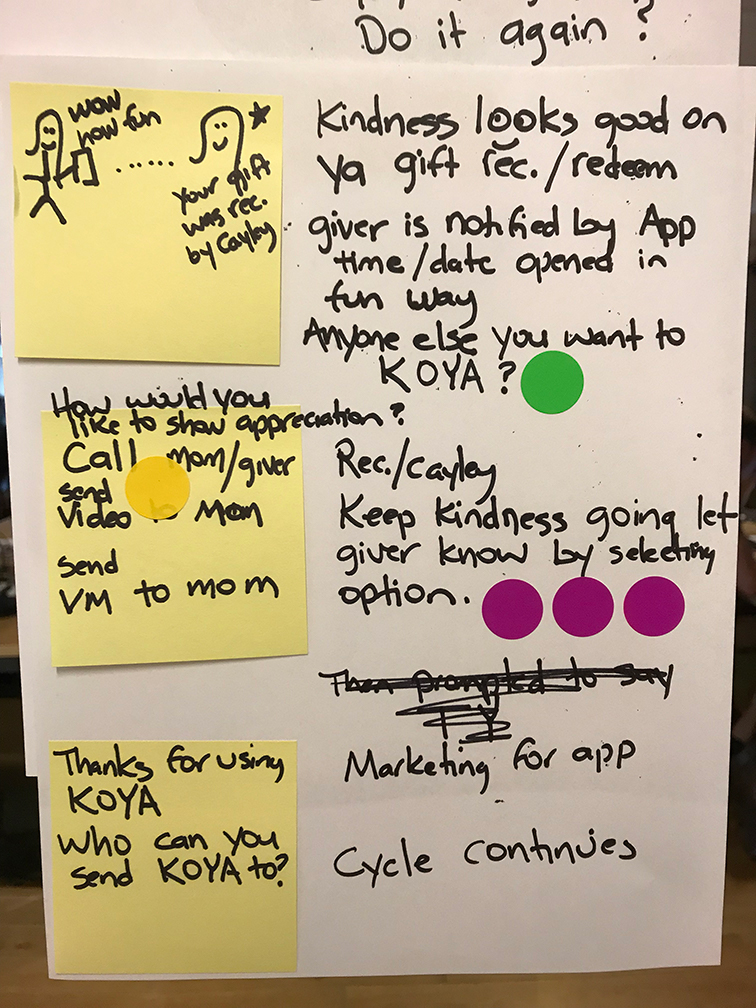 Do it again ?
wow
how fun
Your gift
was rec.
by Cayley
Kindness looks good on
ya gift rec./redeem
giver is notified by App
time/date opened in
fun way
Anyone else you want to
KOYA ?
How would you
like to show appreciation ?
Call mom/giver
send
Video to Mom
send
VM to mom
Rec./Cayley
Keep kindness going let
giver know by selecting
option.
Then prompted to say
TY
Thanks for using
KOYA
Who can you
send KOYA to?
Marketing for app
Cycle continues